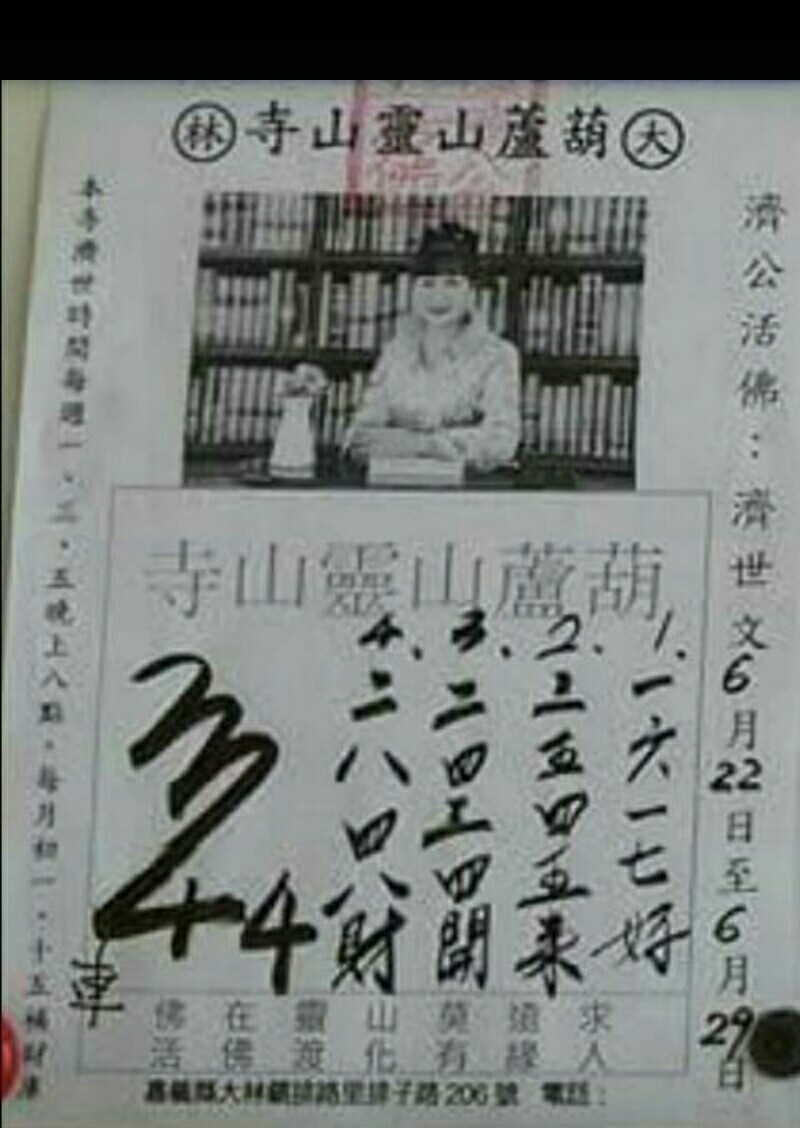 大葫蘆山靈山寺林
濟公活佛：濟世文6月22日至6月29日
葫蘆山靈山寺
1、一六一七好
2、三五四五來
3、二四三四開
4、二八四八財
44
車
佛在靈山莫遠求
活佛渡化有緣人
本寺濟世時間每週一、三、五晚上八點，每月初一、十五補財庫
嘉義縣大林鎮排路里排子路206號 電話：